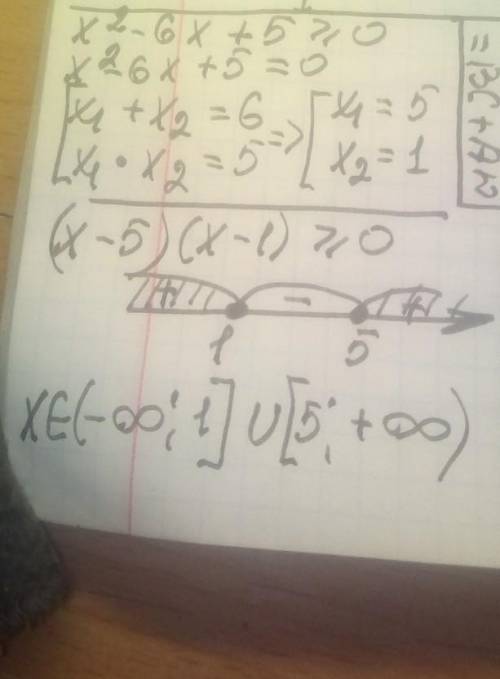 x² - 6x + 5 ≥ 0
x² - 6x + 5 = 0
[x₁ + x₂ = 6
x₁ · x₂ = 5 => [x₁ = 5
x₂ = 1
(x - 5)(x - 1) ≥ 0
+ - +
1 5
x∈(-∞; 1] ∪ [5; +∞)